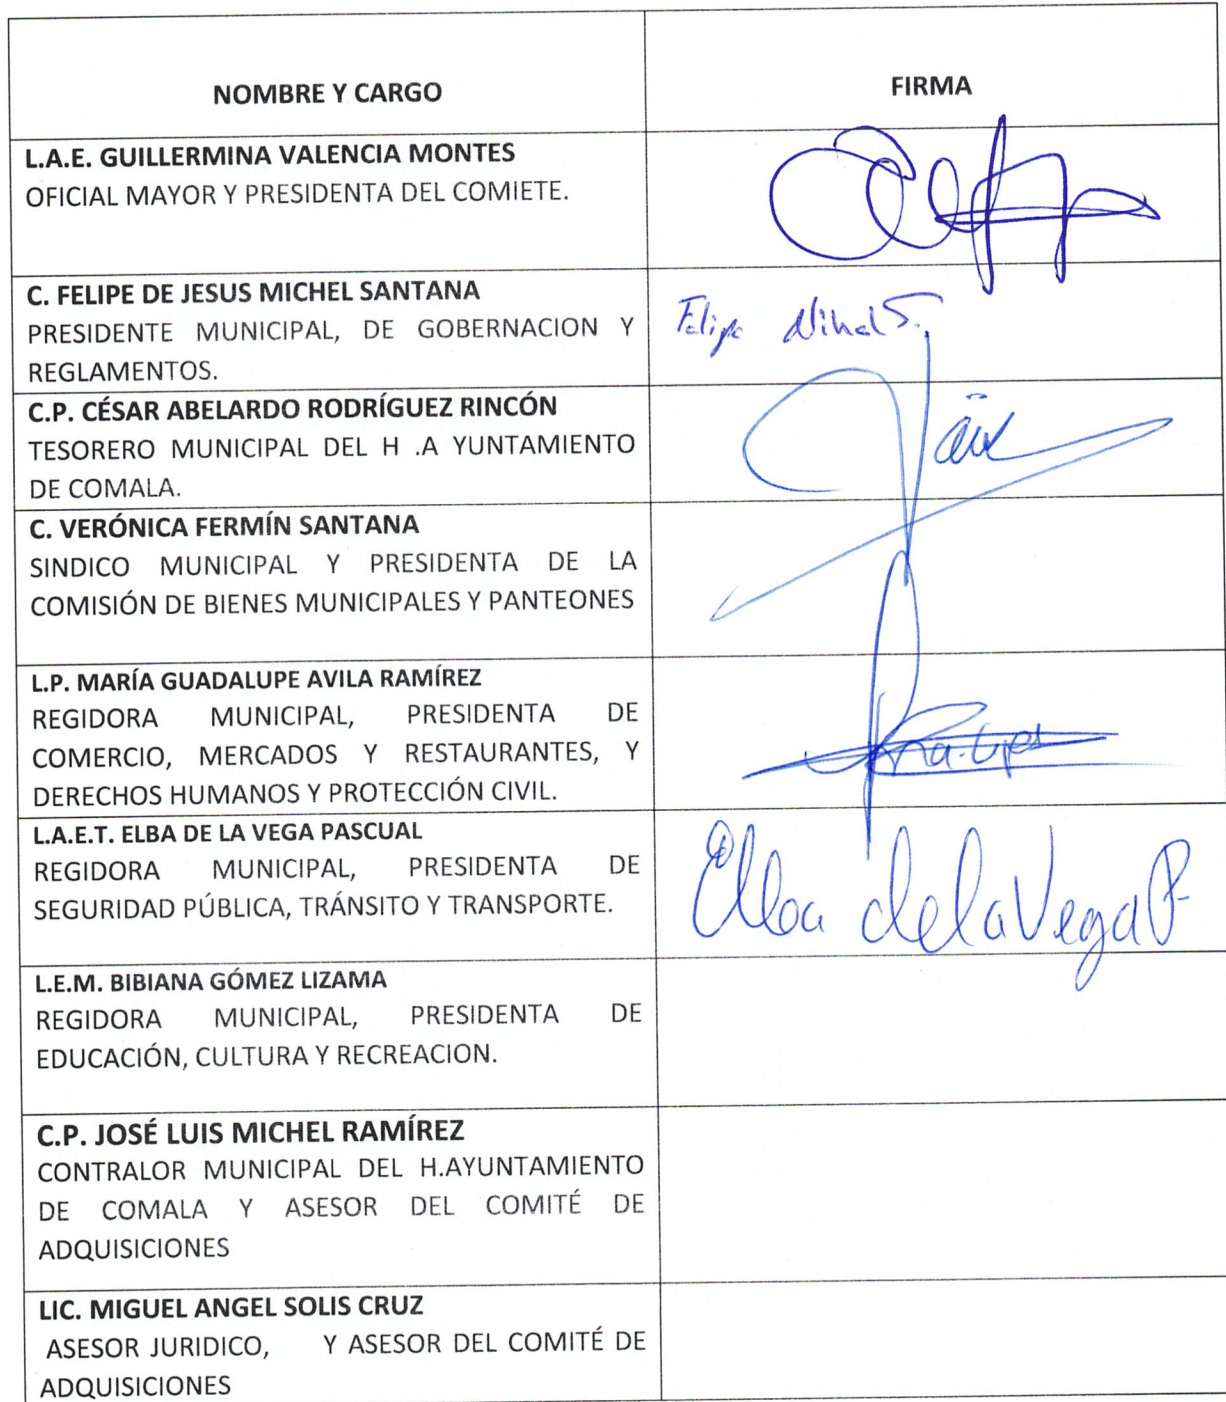 NOMBRE Y CARGO
FIRMA
L.A.E. GUILLERMINA VALENCIA MONTES
OFICIAL MAYOR Y PRESIDENTA DEL COMIETE.
C. FELIPE DE JESUS MICHEL SANTANA
PRESIDENTE MUNICIPAL, DE GOBERNACION Y
REGLAMENTOS.
Felipe Michel S.
C.P. CÉSAR ABELARDO RODRÍGUEZ RINCÓN
TESORERO MUNICIPAL DEL H .A YUNTAMIENTO
DE COMALA.
C. VERÓNICA FERMÍN SANTANA
SINDICO MUNICIPAL Y PRESIDENTA DE LA
COMISIÓN DE BIENES MUNICIPALES Y PANTEONES
L.P. MARÍA GUADALUPE AVILA RAMÍREZ
REGIDORA MUNICIPAL, PRESIDENTA DE
COMERCIO, MERCADOS Y RESTAURANTES, Y
DERECHOS HUMANOS Y PROTECCIÓN CIVIL.
L.A.E.T. ELBA DE LA VEGA PASCUAL
REGIDORA MUNICIPAL, PRESIDENTA DE
SEGURIDAD PÚBLICA, TRÁNSITO Y TRANSPORTE.
Elba de la Vega P.
L.E.M. BIBIANA GÓMEZ LIZAMA
REGIDORA MUNICIPAL, PRESIDENTA DE
EDUCACIÓN, CULTURA Y RECREACION.
C.P. JOSÉ LUIS MICHEL RAMÍREZ
CONTRALOR MUNICIPAL DEL H.AYUNTAMIENTO
DE COMALA Y ASESOR DEL COMITÉ DE
ADQUISICIONES
LIC. MIGUEL ANGEL SOLIS CRUZ
ASESOR JURIDICO, Y ASESOR DEL COMITÉ DE
ADQUISICIONES